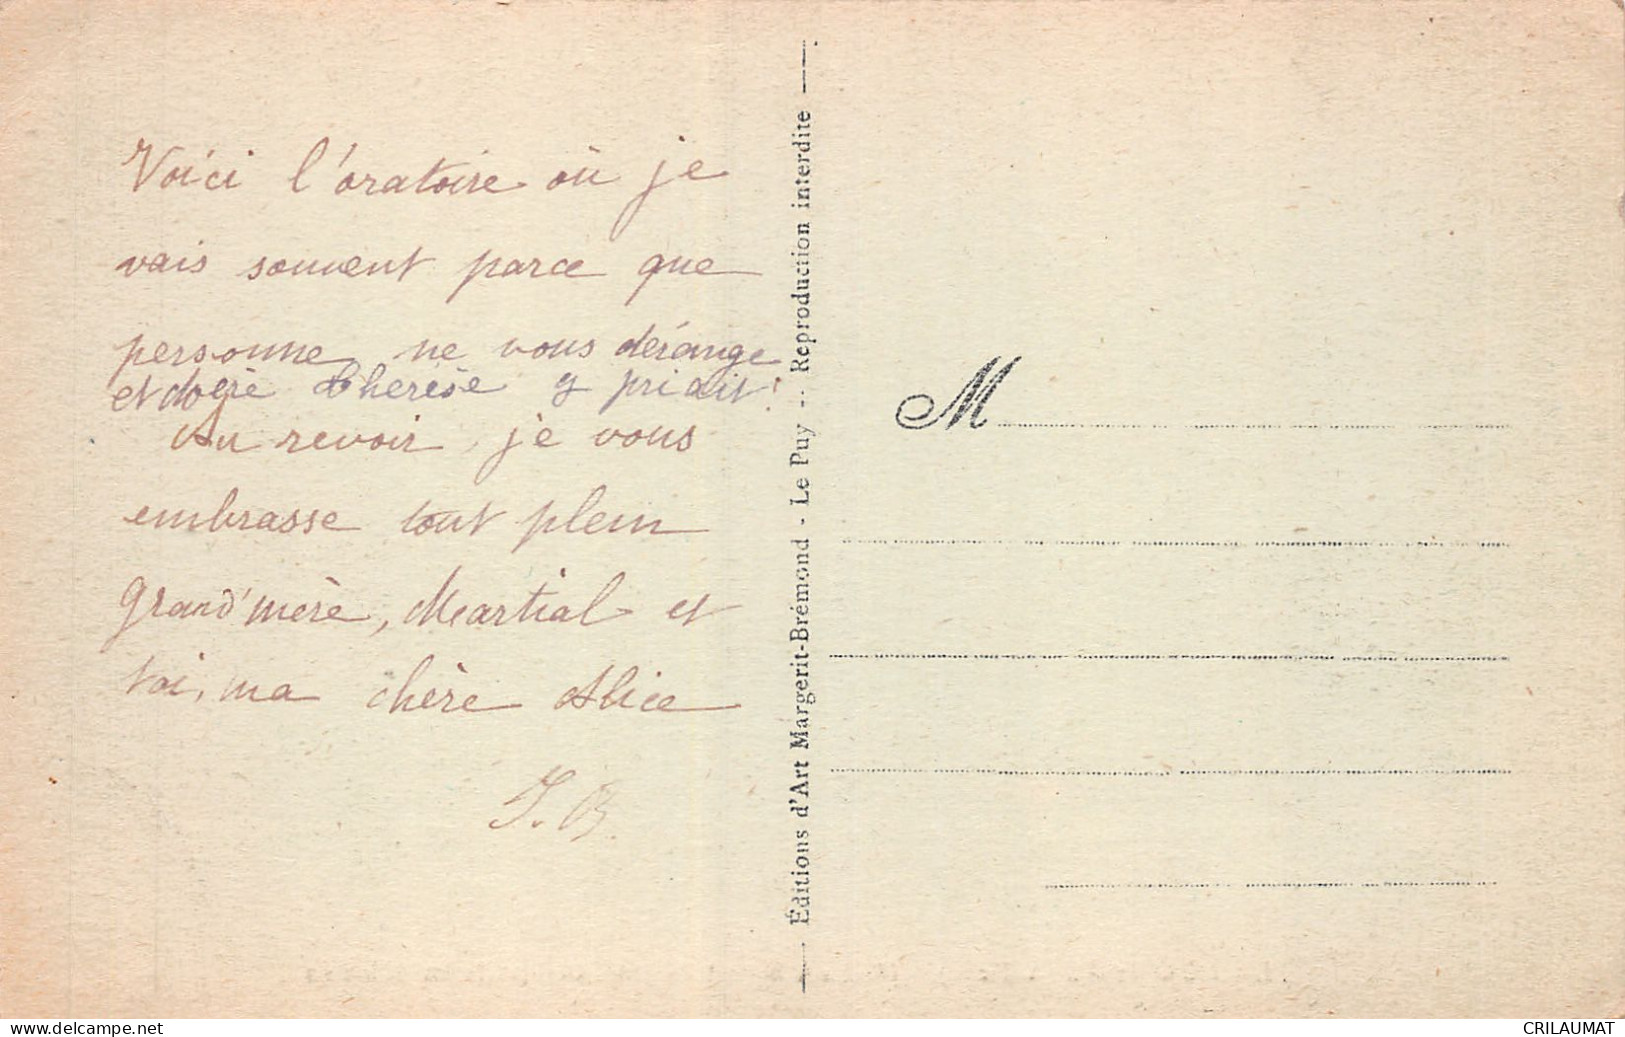 Voici l'oratoire où je
vais souvent parce que
personne ne vous dérange
et Thérèse y priait!
Au revoir, je vous
embrasse tout plein
Grand'mère, Martial et
toi, ma chère Alice
J. B.
Éditions d'Art Margerit-Brémond - Le Puy -- Reproduction interdite
M
www.delcampe.net
CRILAUMAT